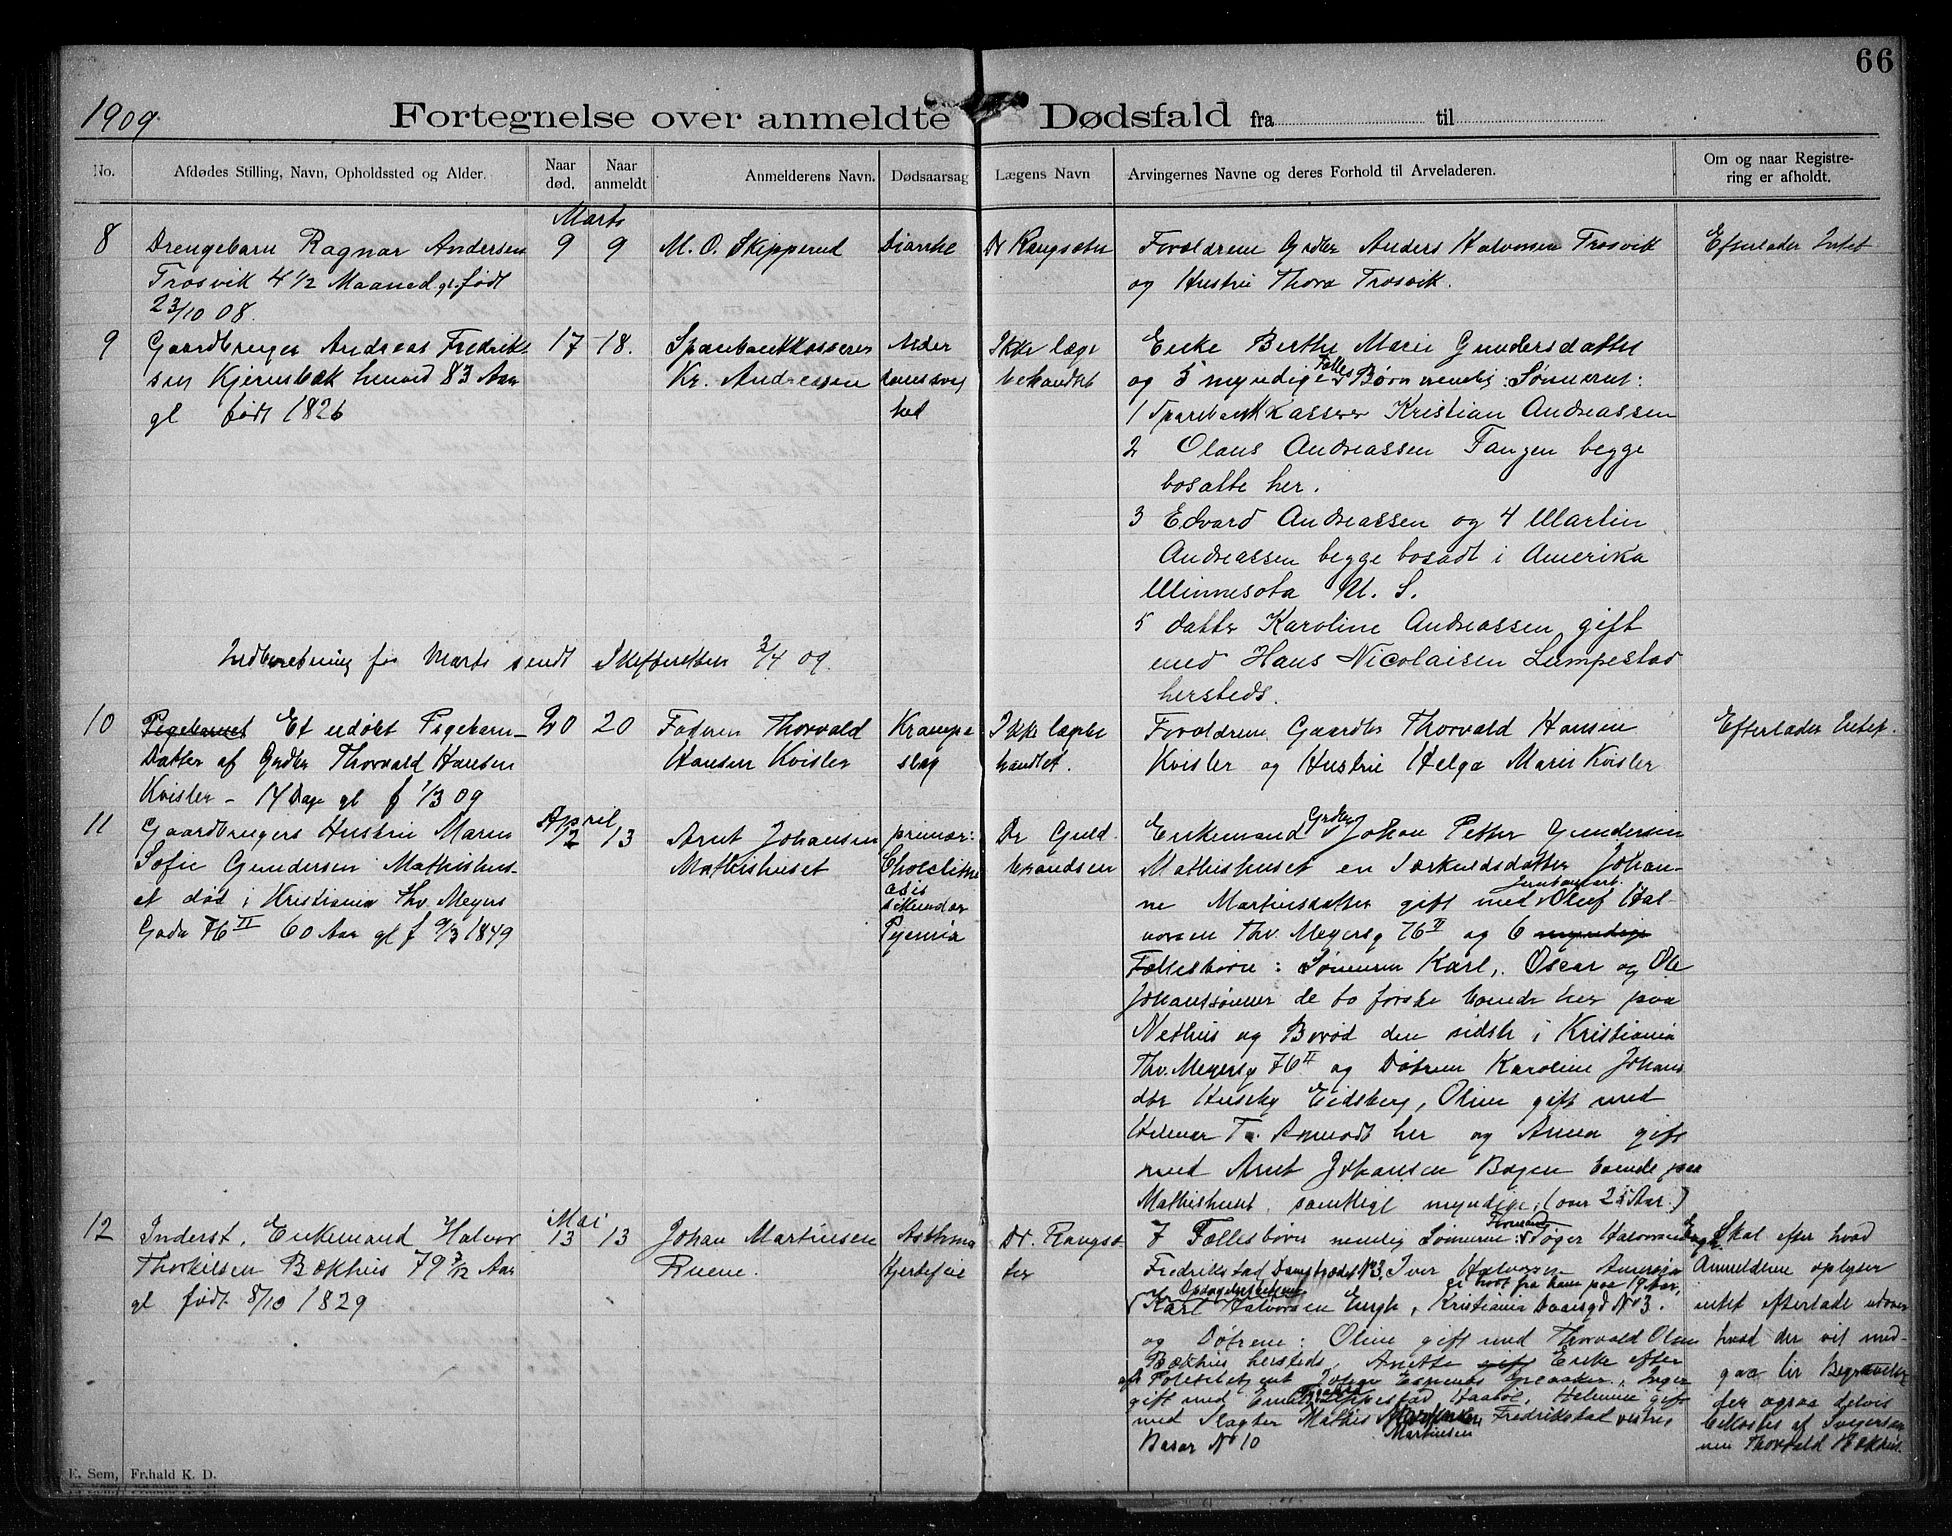 66
1909
Fortegnelse over anmeldte Dødsfald fra til
No.
Afdødes Stilling, Navn, Opholdssted og Alder.
Naar
død.
Naar
anmeldt
Anmelderens Navn.
Dødsaarsag
Lægens Navn
Arvingernes Navne og deres Forhold til Arveladeren.
Om og naar Registre-
ring er afholdt.
Marts
8
Drengebarn Ragnar Andersen
Trosvik 4 1/2 Maaned gl. født
23/10 08.
9
9
M. O. Skipperud
Diarrhe
Dr
Forældrene Grdbr Anders Halvorsen Trosvik
og Hustru Thora Trosvik.
Efterlader Intet
9
Gaardbruger Andreas Fredrik-
sen Kjernsbæk henved 83 Aar
gl født 1826
17
18.
Sparebankkasserer
Kr. Andreassen
Alder
domssvag
hed
Ikke læge
behandlet
Enke Berthe Marie Gundersdatter
og 5 myndige Fælles Børn nemlig: Sønnerne:
1 Sparebankkasserer Kristian Andreassen
2 Olaus Andreassen Tangen begge
bosatte her.
3 Edvard Andreassen og 4 Martin
Andreassen begge bosadt i Amerika
Minnesota U. S.
5 datter Karoline Andreassen gift
med Hans Nicolaisen Lumpestad
hersteds.
Indberetning for Marts sendt Skifteretten 3/4 09.
10
Pigebarnet Et udøbt Pigebarn-
Datter af Grdbr Thorvald Hansen
Kvisler - 14 Dage gl f 7/3 09
20
20
Faderen Thorvald
Hansen Kvisler
Krampe
slag
Ikke lægebe
handlet.
Forældrene Gaardbr Thorvald Hansen
Kvisler og Hustru Helga Marie Kvisler
Efterlader Intet.
April
11
Gaardbrugers Hustru Maren
Sofie Gundersen Mathishus-
et død i Kristiania Thv. Meyers
Gade 76 II 60 Aar gl f 9/3 1849
13
Arnt Johansen
Mathishuset
primær:
Cholelithe
asis
sekundær
Pyemia
Dr Guld
brandsen
Enkemand Grdbr Johan Petter Gundersen
Mathishuset en Særkuldsdatter Johan-
ne Martinsdatter gift med Jernbanearb. Oluf Hal-
vorsen Thv. Meyersg 76 II og 6 myndige
Fællesbørn: Sønnerne Karl, Oscar og Ole
Johanssønner de to første boende her paa
Nethus og Borød den sidste i Kristiania
Thv. Meyersg 76 II og Døtrene Karoline Johans
dtr Huseby Eidsberg, Oline gift med
Hilmar T. her og Anna gift
med Arnt Johansen Bøgen boende paa
Mathishuset, samtlige myndige (over 25 Aar.)
Mai
12
Inderst, Enkemand Halvor
Thorkilsen Bækhus 79 7/12 Aar
gl født 8/10 1829
13
13
Johan Martinsen
Ruene.
Asthma
Hjertefeil
Dr. Rangsæ
ter
7 Fællesbørn nemlig Sønnerne Halvorsen Engh
Fredrikstad No 3, Iver Halvorsen Amerika
ei hørt fra ham paa 19 Aar,
Karl Halvorsen Engh, Kristiania No 3.
og Døtrene: Oline gift med Thorvald Olsen
Bækhus hersteds, Anette gift Enke efter
Politibetjent Johan , Inger
gift med Emil Lippestad , Helene gift
med Slagter Mathis Martinsen Fredrikstad vestre
Basar No 10
Skal efter hvad
Anmelderne oplyser
intet efterlade udover
hvad der vil med-
gaa til Begravelse
der ogsaa delvis
bekostes af Svigersøn
nen Thorvald Bækhus.
E. Sem, Fr.hald K. D.